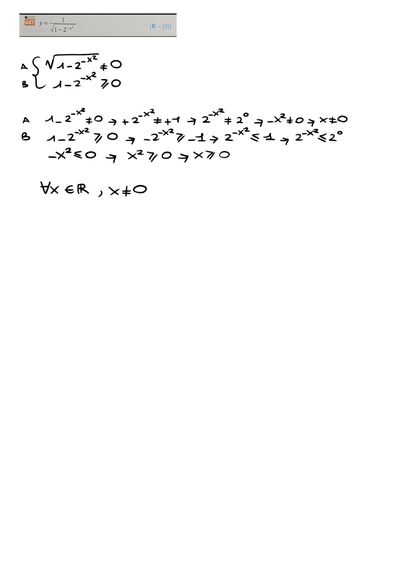 647 y = 1/√(1-2^(-x²)) [R - {0}]
A { √(1-2^(-x²)) ≠ 0
B { 1-2^(-x²) ⩾ 0
A 1-2^(-x²) ≠ 0 → +2^(-x²) ≠ +1 → 2^(-x²) ≠ 2⁰ → -x² ≠ 0 → x ≠ 0
B 1-2^(-x²) ⩾ 0 → -2^(-x²) ⩾ -1 → 2^(-x²) ⩽ 1 → 2^(-x²) ⩽ 2⁰
-x² ⩽ 0 → x² ⩾ 0 → x ⩾ 0
∀x ∈ ℝ , x ≠ 0